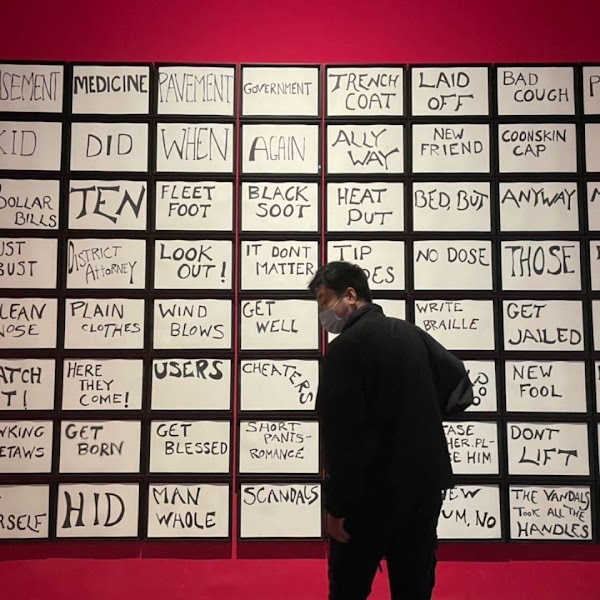 SEMENT
MEDICINE
PAVEMENT
GOVERNMENT
TRENCH
COAT
LAID
OFF
BAD
COUGH
P
KID
DID
WHEN
AGAIN
ALLY
WAY
NEW
FRIEND
COONSKIN
CAP
DOLLAR
BILLS
TEN
FLEET
FOOT
BLACK
SOOT
HEAT
PUT
BED, BUT
ANYWAY
UST
BUST
DISTRICT
ATTORNEY
LOOK
OUT!
IT DONT
MATTER
TIP
OES
NO DOSE
THOSE
LEAN
NOSE
PLAIN
CLOTHES
WIND
BLOWS
GET
WELL
WRITE
BRAILLE
GET
JAILED
ATCH
T!
HERE
THEY
COME!
USERS
CHEATERS
NEW
FOOL
WKING
ETAWS
GET
BORN
GET
BLESSED
SHORT
PANTS-
ROMANCE
EASE
HER.PL-
SE HIM
DONT
LIFT
RSELF
HID
MAN
WHOLE
SCANDALS
EW
UM, NO
THE VANDALS
TOOK ALL THE
HANDLES